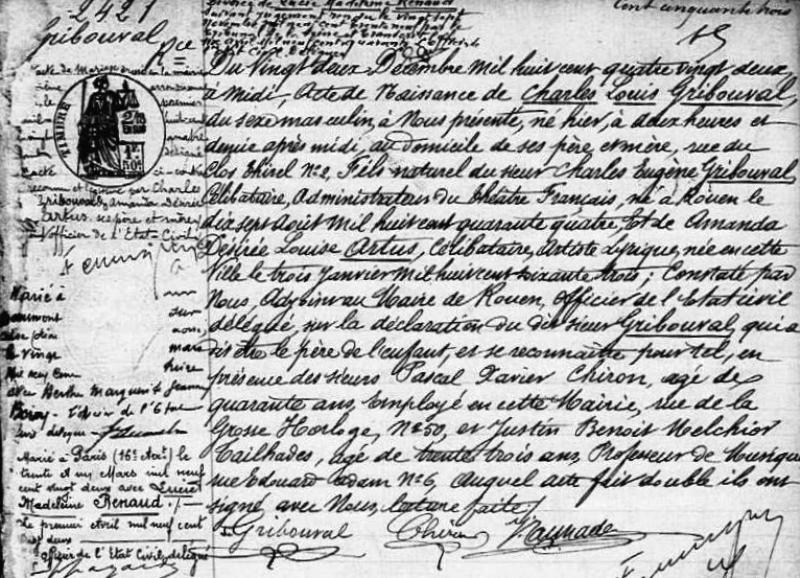 2421
Gribouval
Divorce de Lucie Madeleine Renaud
suivant jugement rendu le vingt sept
Novembre mil neuf cent
Tribunal de la Seine et transcrit le
mil neuf cent quarante
cent cinquante trois
Du Vingt deux Décembre Mil huit cent quatre vingt deux
à midi, Acte de Naissance de Charles Louis Gribouval,
du sexe masculin, à Nous présenté, né hier, à deux heures et
demie après midi, au domicile de ses père et mère, rue du
Clos Thirel No 2, Fils naturel du sieur Charles Eugène Gribouval,
Célibataire, Administrateur du Théâtre Français, né à Rouen le
dix sept Août Mil huit cent quarante quatre, et de Amanda
Désirée Louise Artus, Célibataire, Artiste Lyrique, née en cette
Ville le trois Janvier Mil huit cent soixante trois; Constaté par
Nous, Adjoint au Maire de Rouen, Officier de l'Etat civil
délégué, sur la déclaration du dit sieur Gribouval, qui a
dit être le père de l'enfant, et se reconnaître pour tel, en
présence des sieurs Pascal Xavier Chiron, agé de
quarante ans, Employé en cette Mairie, rue de la
Grosse Horloge, No 50, et Justin Benoit Melchior
Tailhades, agé de trente trois ans, Professeur de Musique
rue Edouard Adam No 6, Auquel acte fait double ils ont
signé avec Nous, lecture faite
Gribouval Chiron
TIMBRE
reconnu et par Charles
Gribouval & Amanda Désirée
Artus, ses père et mère
l'officier de l'Etat Civil
Marié à
le vingt
mil neuf cent
avec Berthe Marguerite Jeanne
Marié à Paris (16e Arrt) le
trente et un Mars mil neuf
cent vingt deux avec Lucie
Madeleine Renaud
Le premier Avril mil neuf cent
vingt deux
officier de l'Etat Civil délégué